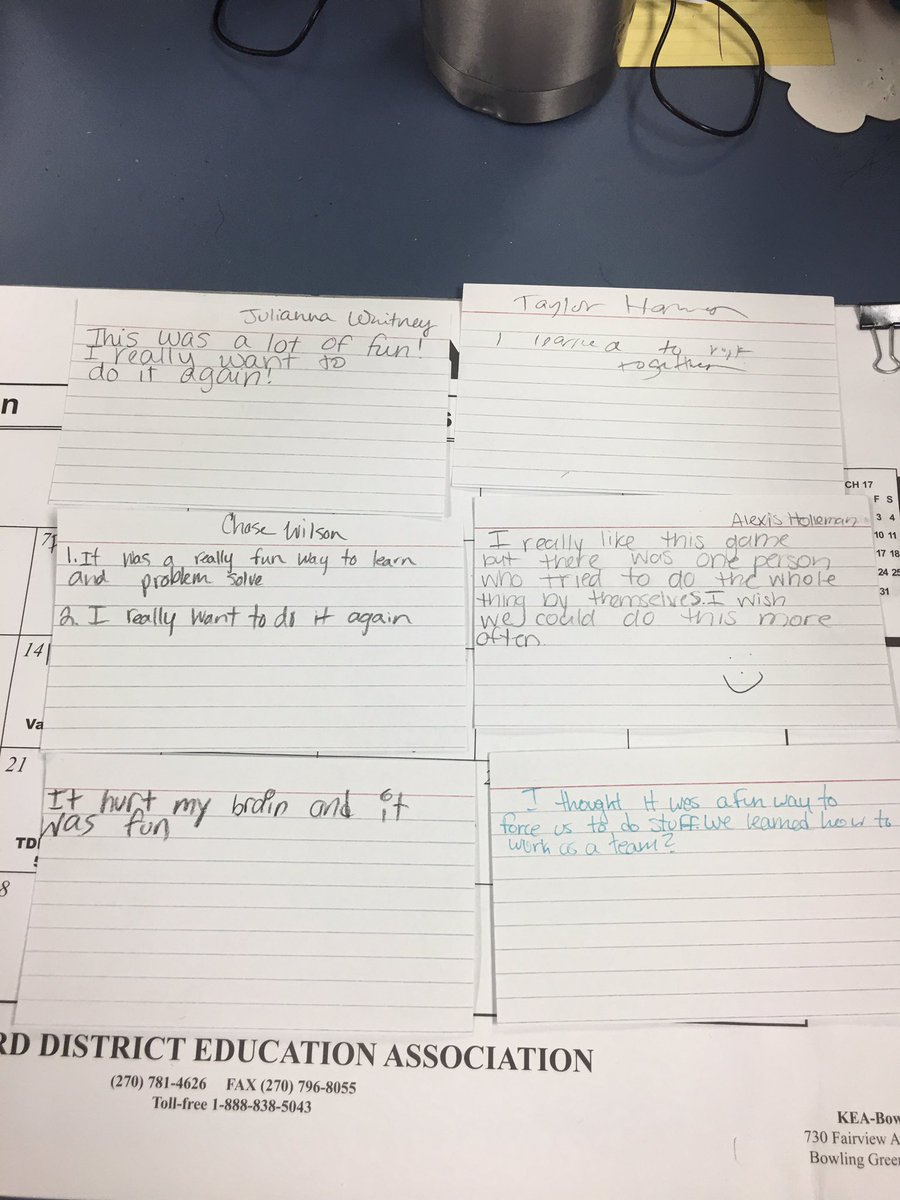 Julianna Whitney
This was a lot of fun!
I really want to
do it again!
Taylor
I learned to
together
Chase Wilson
1. It was a really fun way to learn
and problem solve
2. I really want to do it again
Alexis Holleman
I really like this game
but there was one person
who tried to do the whole
thing by themselves. I wish
we could do this more
often.
It hurt my brain and it
was fun
I thought it was a fun way to
force us to do stuff. We learned how to
work as a team?
n
s
CH 17
F S
3 4
10 11
17 18
24 25
31
7
14
Va
21
TD
8
RD DISTRICT EDUCATION ASSOCIATION
(270) 781-4626 FAX (270) 796-8055
Toll-free 1-888-838-5043
KEA-Bow
730 Fairview A
Bowling Green